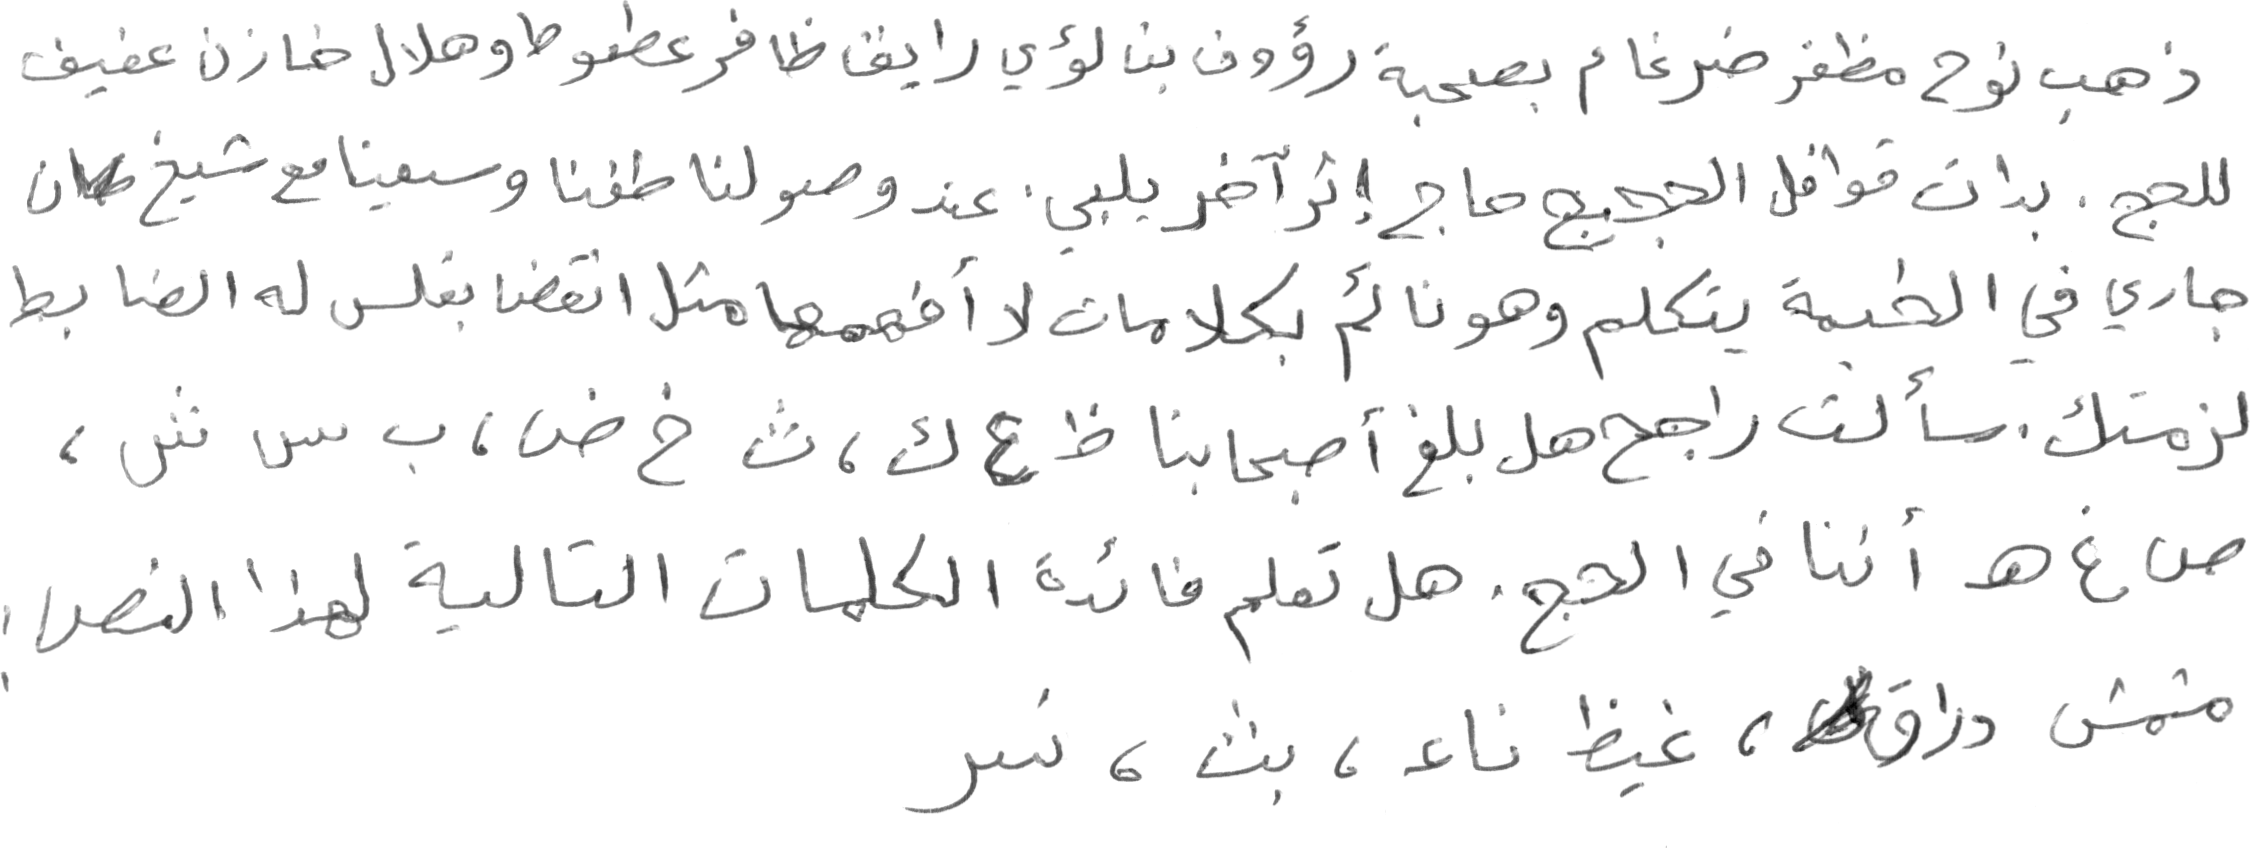 ذهب نوح مظفر ضرغام بصحبة رؤوف بنا لؤي رايق ظافر عطوط وهلال خازن عفيف
للحج. بدات قوافل الحجيج حاج إثر آخر يلبي. عند وصولنا طفنا وسعينا مع شيخ كان
جاري في الخيمة يتكلم وهو نائم بكلامات لا أفهمها مثل انقضا بفلس له الضابط
لزمتك. سألت راجح هل بلغ أصحابنا ظ ع ك، ث خ ض، ب س ش،
ص غ هـ أننا في الحج. هل تعلم فائدة الكلمات التالية لهذا النص!:
مشمش دراق، غيظ ناء، بث، نسر